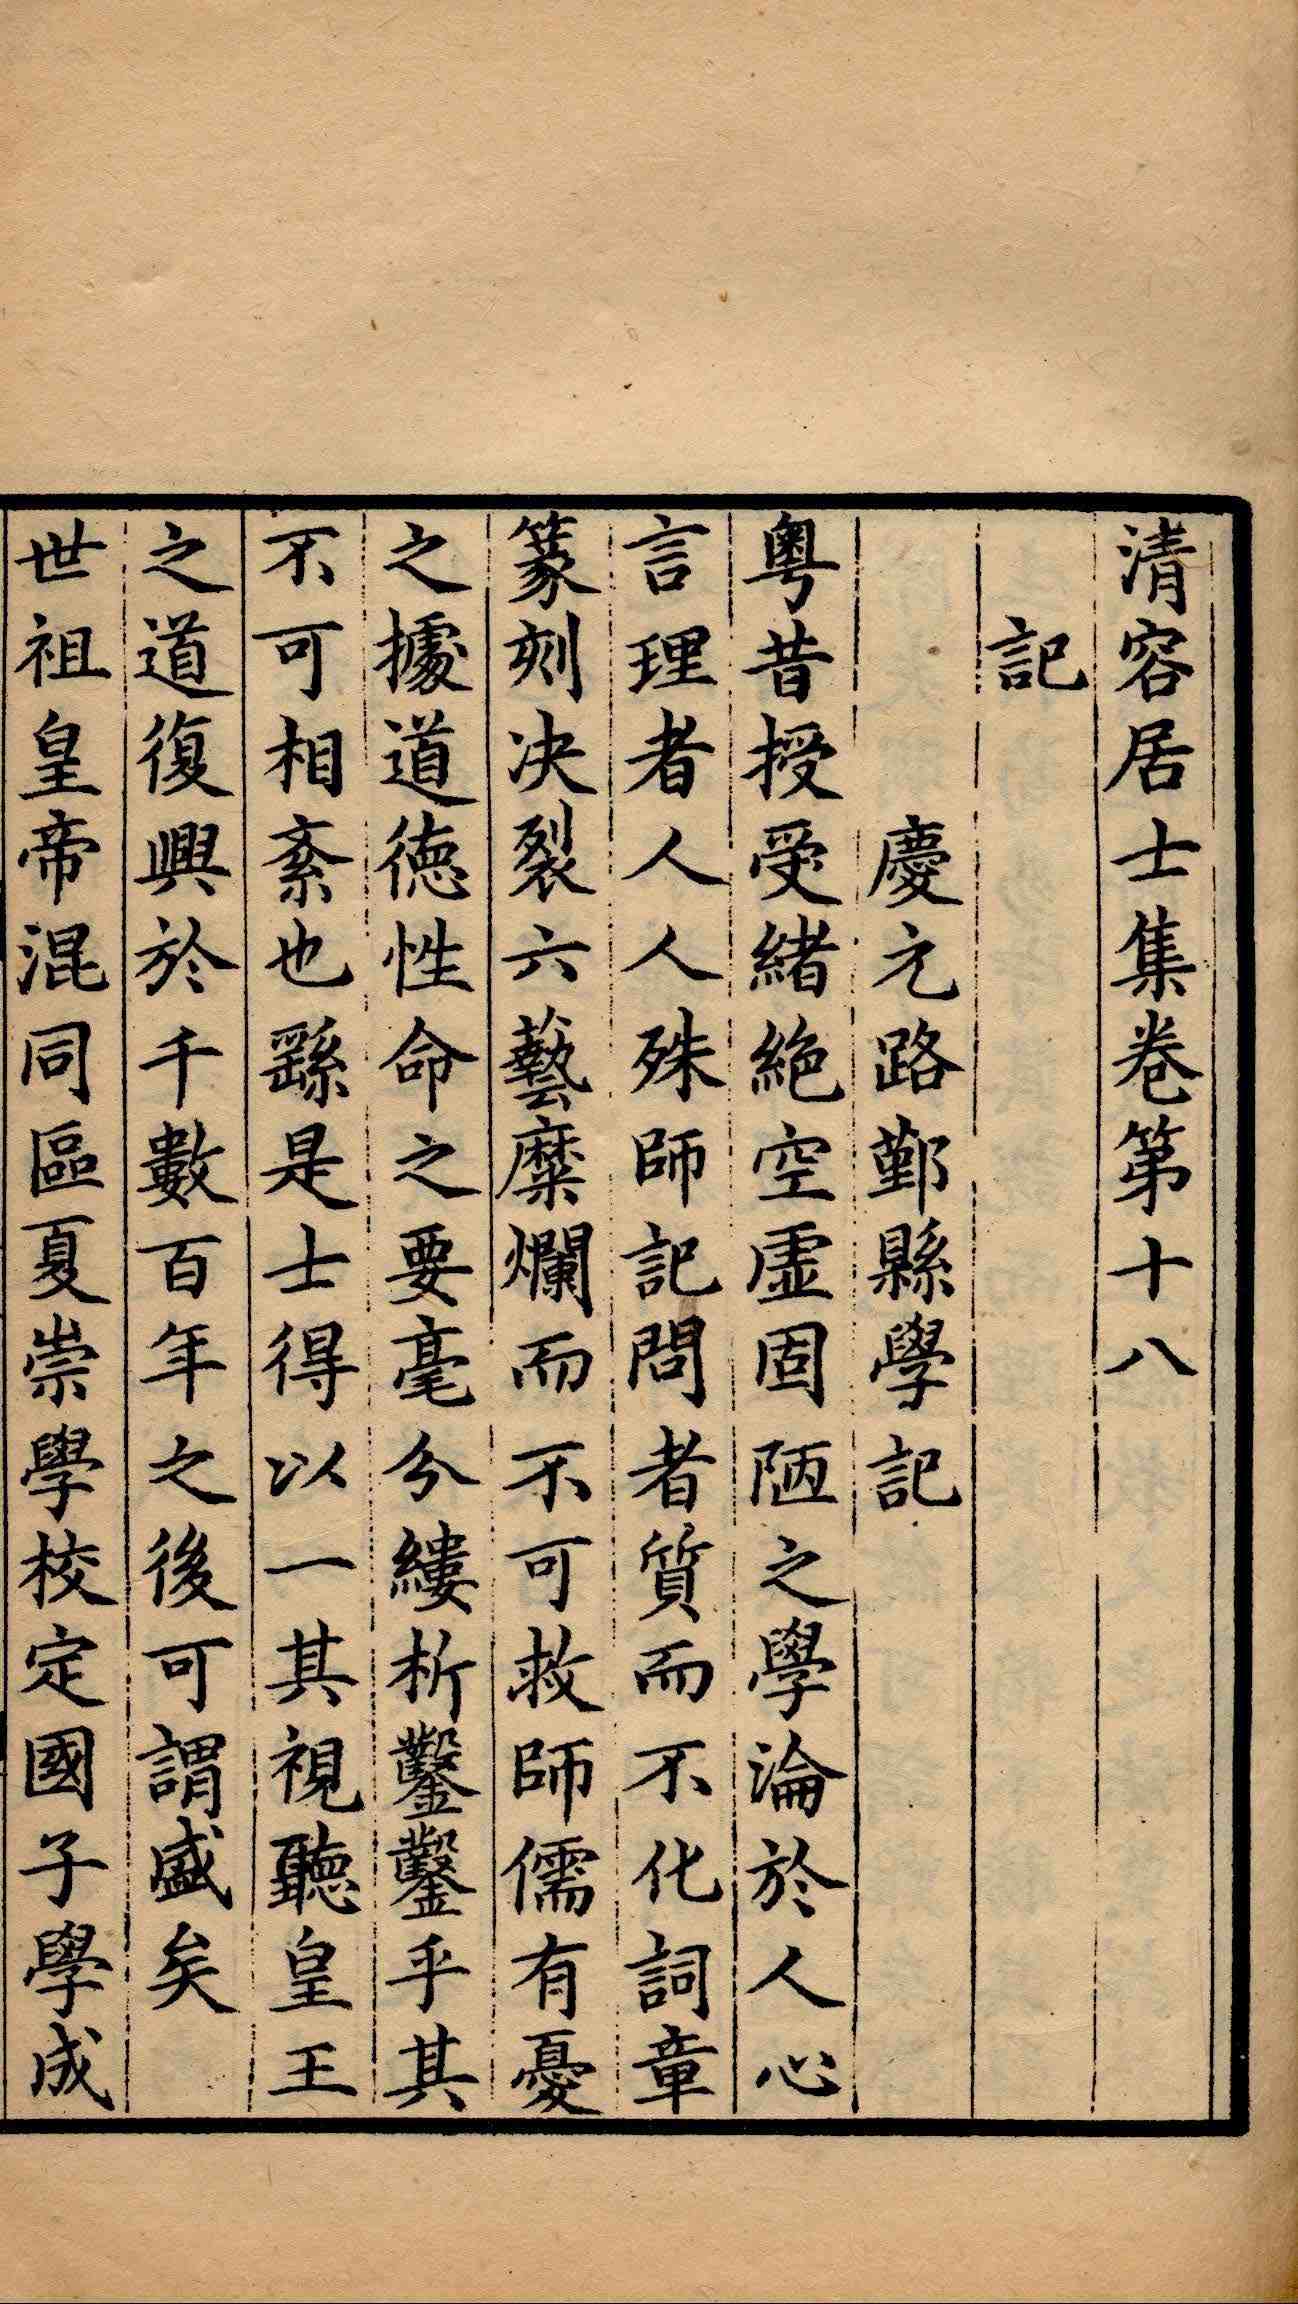 清容居士集卷第十八
記
慶元路鄞縣學記
粤昔授受緒絶空虛固陋之學淪於人心
言理者人人殊師記問者質而不化詞章
篆刻决裂六藝糜爛而不可救師儒有憂
之據道德性命之要毫分縷析鑿鑿乎其
不可相紊也繇是士得以一其視聽皇王
之道復興於千數百年之後可謂盛矣
世祖皇帝混同區夏崇學校定國子學成